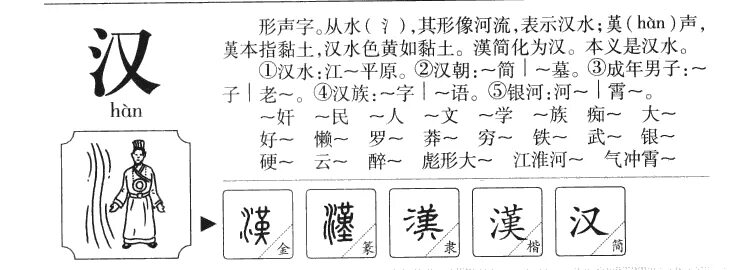 汉
hàn
形声字。从水(氵),其形像河流,表示汉水;𦰩(hàn)声,
𦰩本指黏土,汉水色黄如黏土。漢简化为汉。本义是汉水。
①汉水:江～平原。②汉朝:～简|～墓。③成年男子:～
子|老～。④汉族:～字|～语。⑤银河:河～|霄～。
～奸 ～民 ～人 ～文 ～学 ～族 痴～ 大～
好～ 懒～ 罗～ 莽～ 穷～ 铁～ 武～ 银～
硬～ 云～ 醉～ 彪形大～ 江淮河～ 气冲霄～
漢 金
漢 篆
漢 隶
漢 楷
汉 简